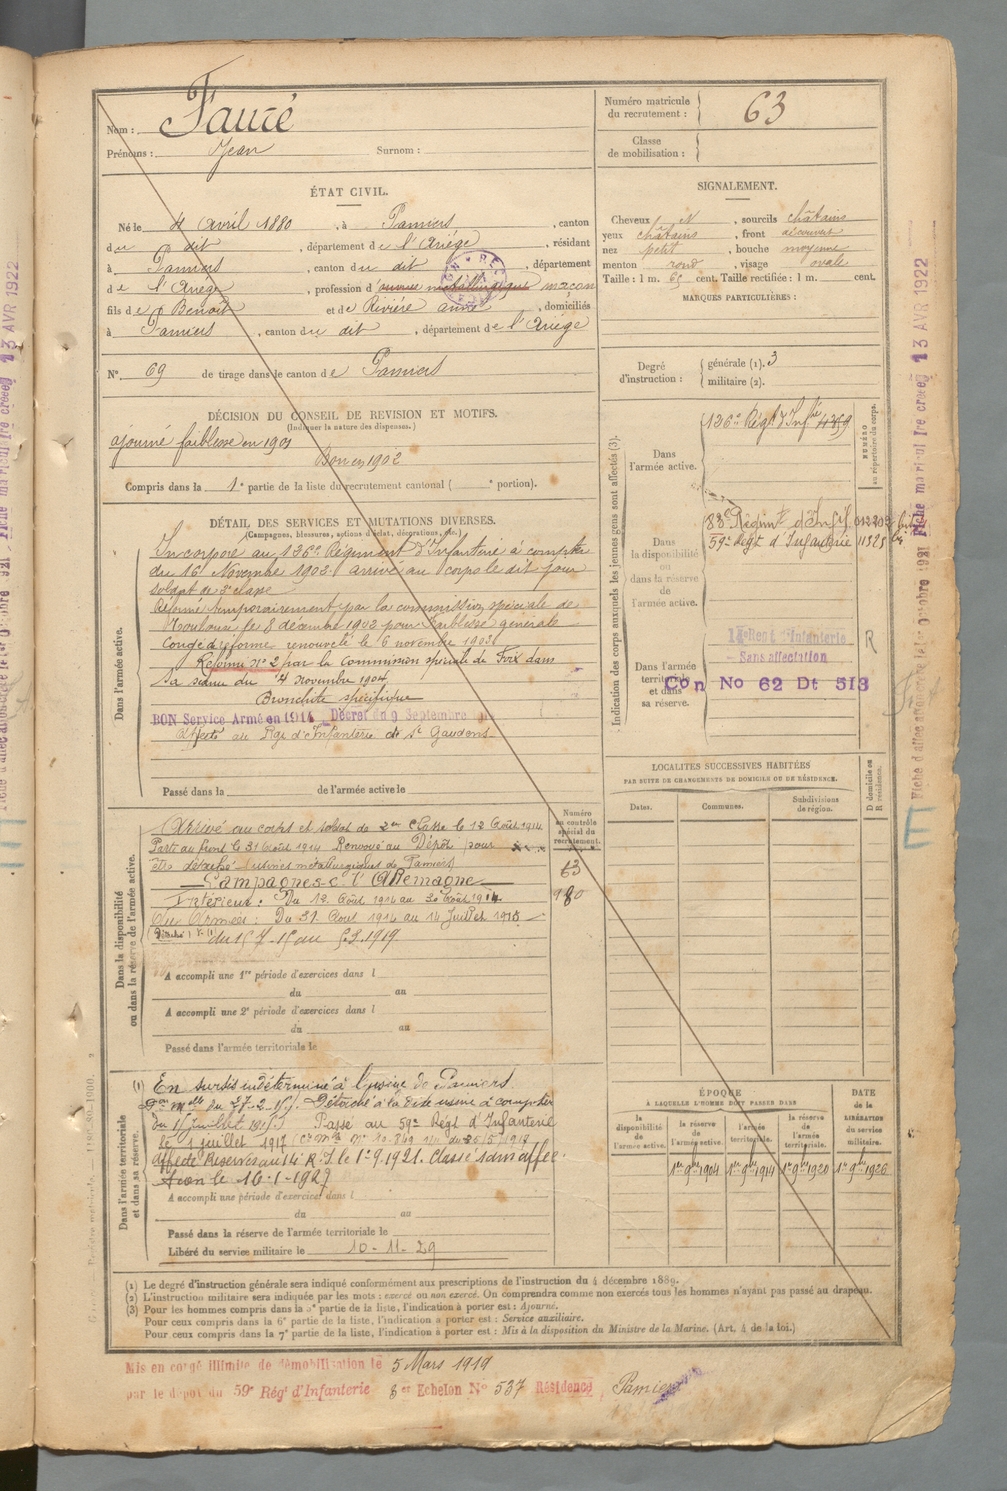 Nom : Fauré
Prénoms : Jean Surnom :
Numéro matricule du recrutement : 63
Classe de mobilisation :
ÉTAT CIVIL.
Né le 4 avril 1880, à Pamiers, canton
de dit, département de l'Ariège, résidant
à Pamiers, canton du dit, département
de l'Ariège, profession d'ouvrier métallurgique maçon
fils de Benoît et de Rivière anne, domiciliés
à Pamiers, canton du dit, département de l'Ariège
N° 69 de tirage dans le canton de Pamiers
SIGNALEMENT.
Cheveux N, sourcils châtains
yeux châtains, front découvert
nez petit, bouche moyenne
menton rond, visage ovale
Taille : 1 m. 65 cent. Taille rectifiée : 1 m. cent.
MARQUES PARTICULIÈRES :
Degré d'instruction : générale (1). 3
militaire (2).
DÉCISION DU CONSEIL DE REVISION ET MOTIFS.
(Indiquer la nature des dispenses.)
ajourné faiblesse en 1901
Bon en 1902
Compris dans la 1e partie de la liste du recrutement cantonal ( e portion).
DÉTAIL DES SERVICES ET MUTATIONS DIVERSES.
(Campagnes, blessures, actions d'éclat, décorations, etc.)
Dans l'armée active.
Incorporé au 126e Régiment d'Infanterie à compter
du 16 Novembre 1902 arrivé au corps le dit jour
soldat de 2e classe
Réformé temporairement par la commission spéciale de
Toulouse le 8 décembre 1902 pour faiblesse générale
Congé de réforme renouvelé le 6 novembre 1903
Réformé n° 2 par la Commission spéciale de Foix dans
sa séance du 4 novembre 1904
Bronchite spécifique
BON Service Armé en 1914 Décret du 9 Septembre
Affecté au Rgt d'Infanterie de St Gaudens
Passé dans la de l'armée active le
Indication des corps auxquels les jeunes gens sont affectés (3).
NUMÉRO au répertoire du corps.
Dans l'armée active.
126e Régt d'Infie 4359
Dans la disponibilité ou dans la réserve de l'armée active.
83e Régiment d'Infie 012202
59e Régt d'Infanterie 11325
Dans l'armée territoriale et dans sa réserve.
14e Regt d'Infanterie R
Sans affectation
Con No 62 Dt 513
LOCALITÉS SUCCESSIVES HABITÉES
PAR SUITE DE CHANGEMENTS DE DOMICILE OU DE RÉSIDENCE.
Dates. Communes. Subdivisions de région. D domicile ou R résidence.
Dans la disponibilité ou dans la réserve de l'armée active.
Numéro au contrôle spécial du recrutement.
Arrivé au corps et soldat de 2me classe le 12 Août 1914
Parti au front le 31 Août 1914 Renvoyé au Dépôt pour
être détaché usines métallurgiques de Pamiers 63
Campagnes c. l'Allemagne
Intérieur : Du 12 Août 1914 au 30 Août 1914 980
Aux Armées : Du 31 Août 1914 au 14 Juillet 1915
du 15-7-15 au 5-3-1919
A accompli une 1re période d'exercices dans l
du au
A accompli une 2e période d'exercices dans l
du au
Passé dans l'armée territoriale le
Dans l'armée territoriale et dans sa réserve.
(1) En sursis indéterminé à l'usine de Pamiers
du 27-2-15). Détaché à la dite usine à compter
du 15 juillet 1915 (1) Passé au 59e Régt d'Infanterie
le 1 juillet 1917
affecté Réserves au 14e R.I. le 1-9-1921. Classé sans affec
tion le 16-1-1927
A accompli une période d'exercices dans l
du au
Passé dans la réserve de l'armée territoriale le
Libéré du service militaire le 10-11-29
ÉPOQUE
À LAQUELLE L'HOMME DOIT PASSER DANS
DATE de la LIBÉRATION du service militaire.
la disponibilité de l'armée active. la réserve de l'armée active. l'armée territoriale. la réserve de l'armée territoriale.
1er 9bre 1904 1er 9bre 1914 1er 9bre 1920 1er 9bre 1926
(1) Le degré d'instruction générale sera indiqué conformément aux prescriptions de l'instruction du 4 décembre 1889.
(2) L'instruction militaire sera indiquée par les mots : exercé ou non exercé. On comprendra comme non exercés tous les hommes n'ayant pas passé au drapeau.
(3) Pour les hommes compris dans la 5e partie de la liste, l'indication à porter est : Ajourné.
Pour ceux compris dans la 6e partie de la liste, l'indication à porter est : Service auxiliaire.
Pour ceux compris dans la 7e partie de la liste, l'indication à porter est : Mis à la disposition du Ministre de la Marine. (Art. 4 de la loi.)
Mis en congé illimité de démobilisation le 5 Mars 1919
par le dépôt du 59e Régt d'Infanterie 8er Echelon No 537 Résidence Pamiers
13 AVR 1922
13 AVR 1922